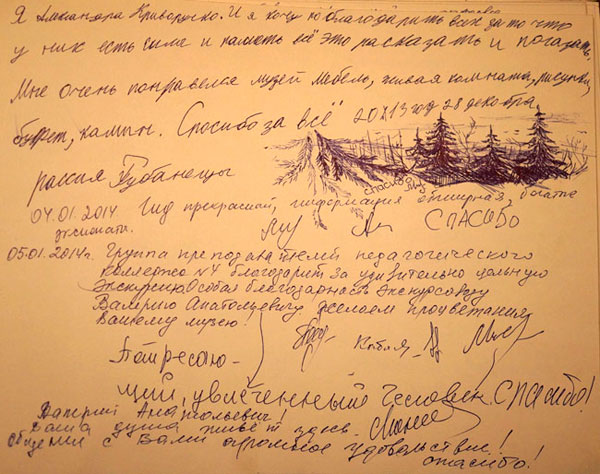 Я Александра Криворучко. И я хочу поблагодарить всех за то что
у них есть сила и память всё это расказать и показать.
Мне очень понравелся музей Мебель, живая комната, рисунки,
буфет, камин. Спосибо за всё 20х13 год 28 декабря
россия Губанецы
спасибо
04.01.2014 Гид прекрасный, информация обширная, богатые
экспонаты. СПАСИБО
05.01.2014г. Группа преподавателей педагогического
колледжа N4 благодарит за удивительно дольную
экскурсию Особая благодарность Экскурсоводу
Валерию Анатольевичу Желаем процветания
Вашему музею!
Потресаю-
щий, увлеченный человек. СПАСИБО!
Валерий Анатольевич!
Ваша душа живёт здесь.
Общении с Вами огромное удовольствие!
спасибо!